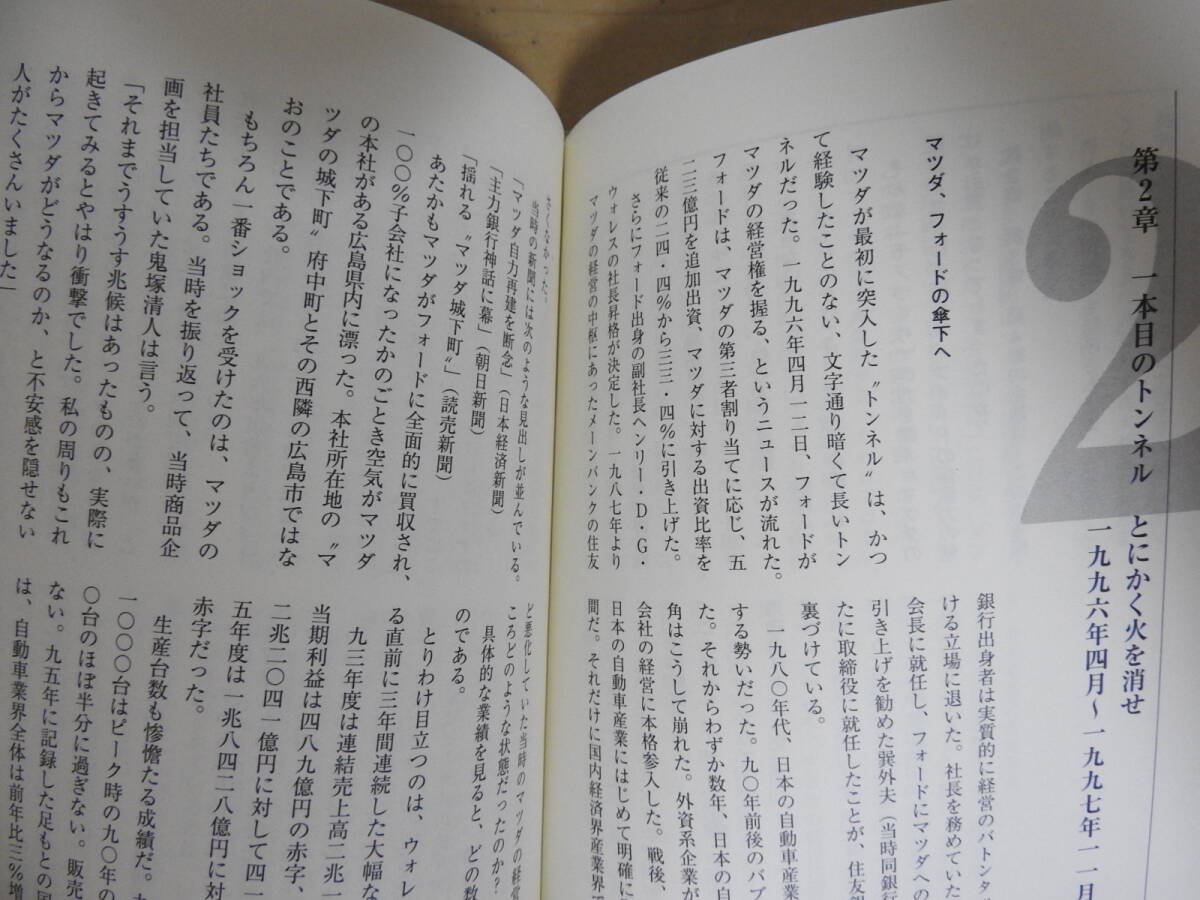 2
第2章 一本目のトンネル とにかく火を消せ
一九九六年四月〜一九九七年一一月
マツダ、フォードの傘下へ
マツダが最初に突入した〝トンネル〟は、かつ
て経験したことのない、文字通り暗くて長いトン
ネルだった。一九九六年四月一二日、フォードが
マツダの経営権を握る、というニュースが流れた。
フォードは、マツダの第三者割り当てに応じ、五
二三億円を追加出資、マツダに対する出資比率を
従来の二四・四%から三三・四%に引き上げた。
さらにフォード出身の副社長ヘンリー・D・G・
ウォレスの社長昇格が決定した。一九八七年より
マツダの経営の中枢にあったメーンバンクの住友
銀行出身者は実質的に経営のバトンタ
ける立場に退いた。社長を務めていた
会長に就任し、フォードにマツダへの
引き上げを勧めた巽外夫（当時同銀行
たに取締役に就任したことが、住友銀
裏づけている。
一九八〇年代、日本の自動車産業
する勢いだった。九〇年前後のバブ
た。それからわずか数年、日本の自
角はこうして崩れた。外資系企業が
会社の経営に本格参入した。戦後、
日本の自動車産業にはじめて明確に
間だ。それだけに国内経済界産業界
さくなかった。
当時の新聞には次のような見出しが並んでいる。
「マツダ自力再建を断念」（日本経済新聞）
「主力銀行神話に幕」（朝日新聞）
「揺れる〝マツダ城下町〟」（読売新聞）
あたかもマツダがフォードに全面的に買収され、
一〇〇%子会社になったかのごとき空気がマツダ
の本社がある広島県内に漂った。本社所在地の〝マ
ツダの城下町〟府中町とその西隣の広島市ではな
おのことである。
もちろん一番ショックを受けたのは、マツダの
社員たちである。当時を振り返って、当時商品企
画を担当していた鬼塚清人は言う。
「それまでうすうす兆候はあったものの、実際に
起きてみるとやはり衝撃でした。私の周りもこれ
からマツダがどうなるのか、と不安感を隠せない
人がたくさんいました」
ど悪化していた当時のマツダの経営
ころどのような状態だったのか？
具体的な業績を見ると、どの数
のである。
とりわけ目立つのは、ウォレ
る直前に三年間連続した大幅な
九三年度は連結売上高二兆一
当期利益は四八九億円の赤字、
二兆二〇四一億円に対して四一
五年度は一兆八四二八億円に対
赤字だった。
生産台数も惨憺たる成績だ。
一〇〇〇台はピーク時の九〇年の
〇台のほぼ半分に過ぎない。販売
ない。九五年に記録した足もとの国
は、自動車業界全体は前年比三%増